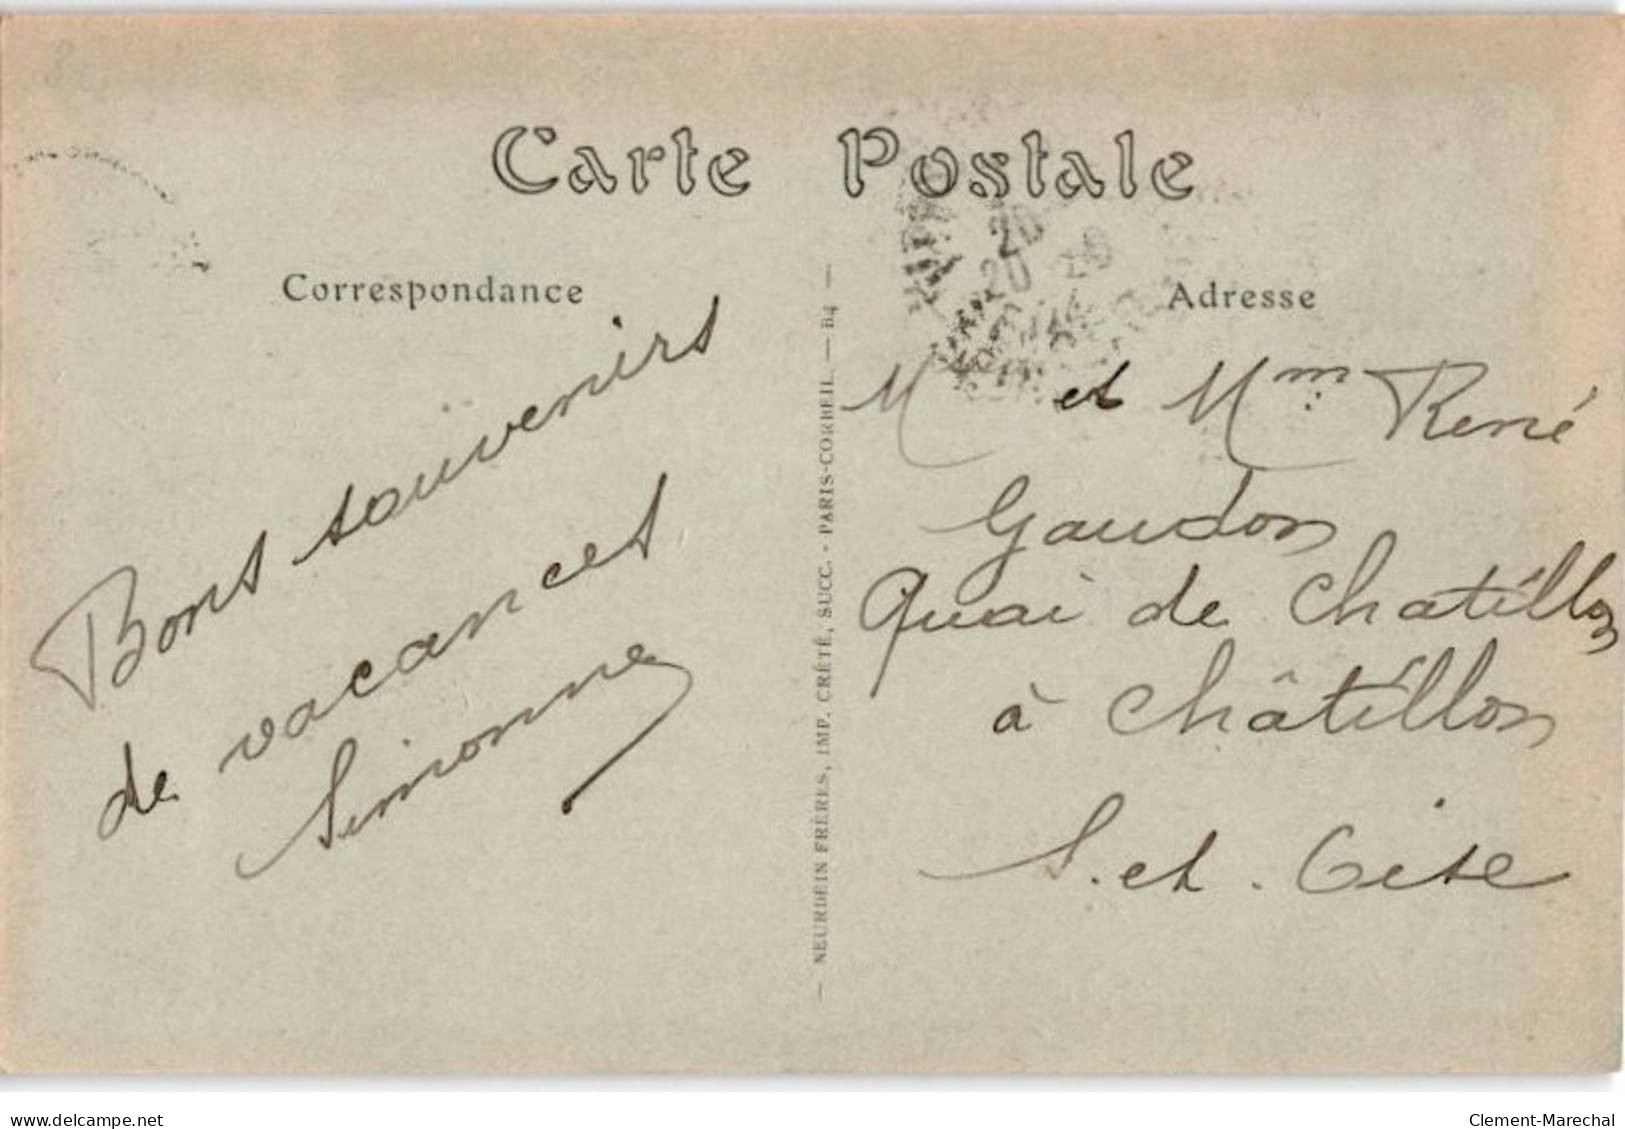 Carte Postale
Correspondance
Bons souvenirs
de vacances
Simonne
— NEURDEIN FRÈRES, IMP. CRÉTÉ, SUCC. - PARIS-CORBEIL. — B4 —
20
20
Adresse
M et Mm René
Gaudon
Quai de Chatillon
à Châtillon
S. et. Oise
delcampe.net
Clement-Marechal